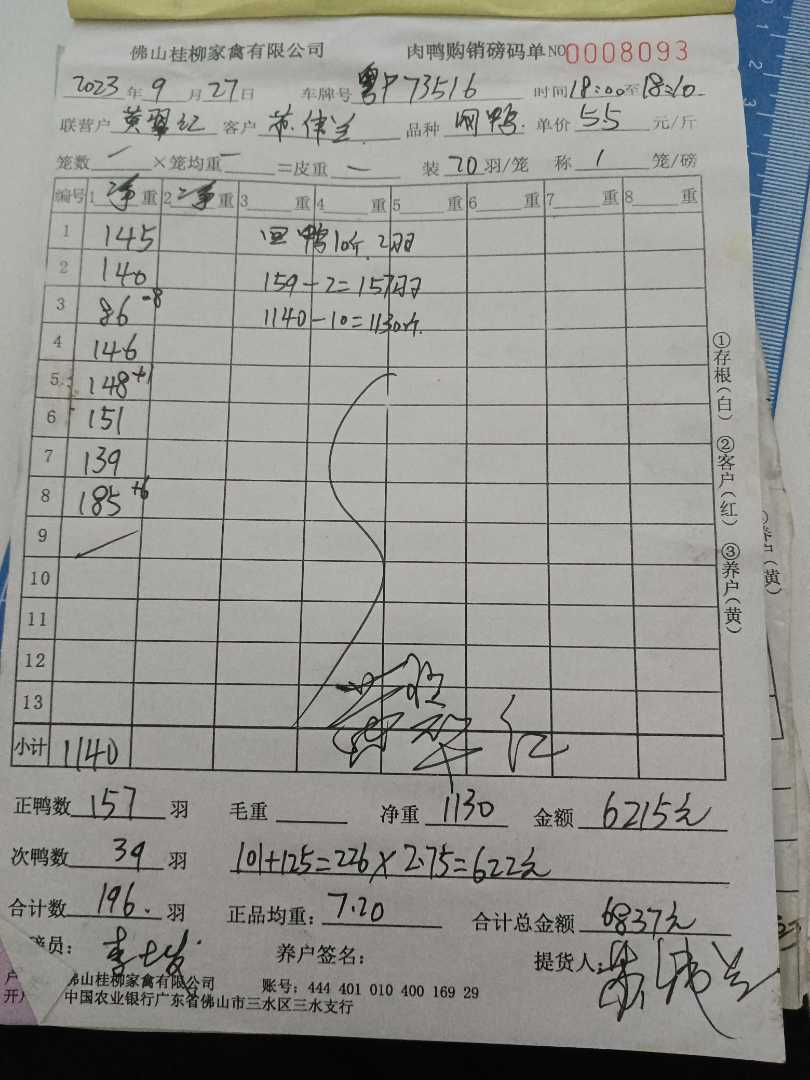 佛山桂柳家禽有限公司 肉鸭购销磅码单 NO 0008093
2023年9月27日 车牌号 粤P73516 时间18:00至18:10
联营户 黄翠红 客户 苏伟兰 品种 网鸭 单价 5.5 元/斤
笼数 一 ×笼均重 一 =皮重 一 装 20 羽/笼 称 1 笼/磅
编号 1 净 重 2 净 重 3 重 4 重 5 重 6 重 7 重 8 重
1 145 回鸭10斤. 2羽
2 140 159-2=157羽
3 86 -8 1140-10=1130斤.
4 146
5 148 +1
6 151
7 139
8 185 +6
9
10
11
12
13
小计 1140
正鸭数 157 羽 毛重 净重 1130 金额 6215元
次鸭数 39 羽 101+125=226×2.75=622元
合计数 196. 羽 正品均重: 7.20 合计总金额 6837元
员: 养户签名: 提货人:
佛山桂柳家禽有限公司 账号: 444 401 010 400 169 29
开户 中国农业银行广东省佛山市三水区三水支行
①存根(白) ②客户(红) ③养户(黄)